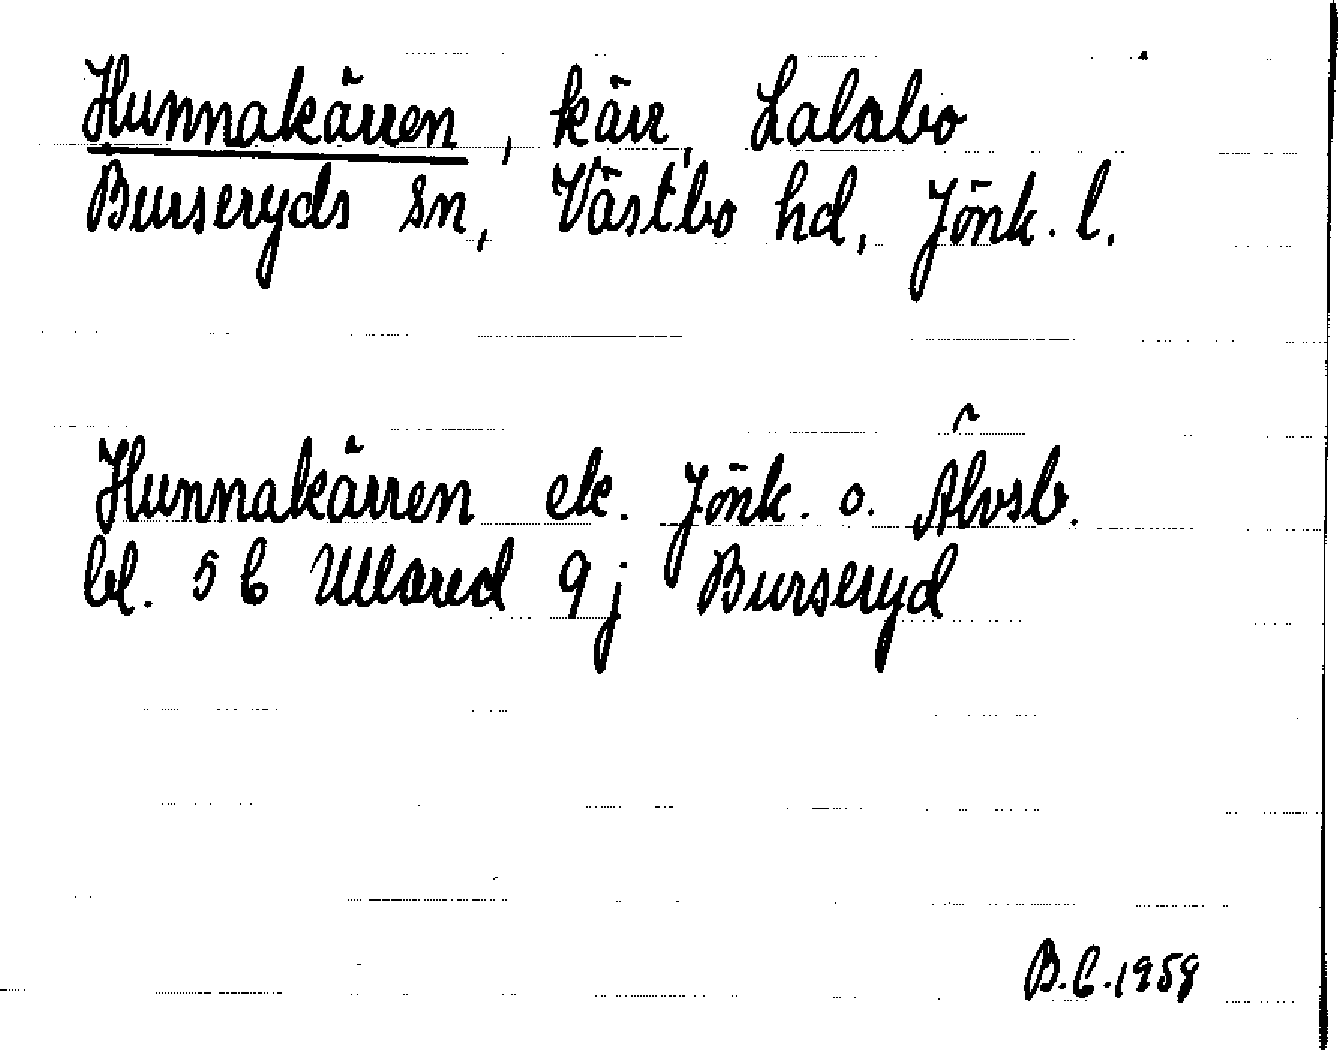 Hunnakärren, kärr, Lalabo
Burseryds sn, Västbo hd, Jönk. l.
Hunnakärren ek. Jönk. o. Älvsb.
bl. 5 6 Ullared 9 j Burseryd
B.C. 1959